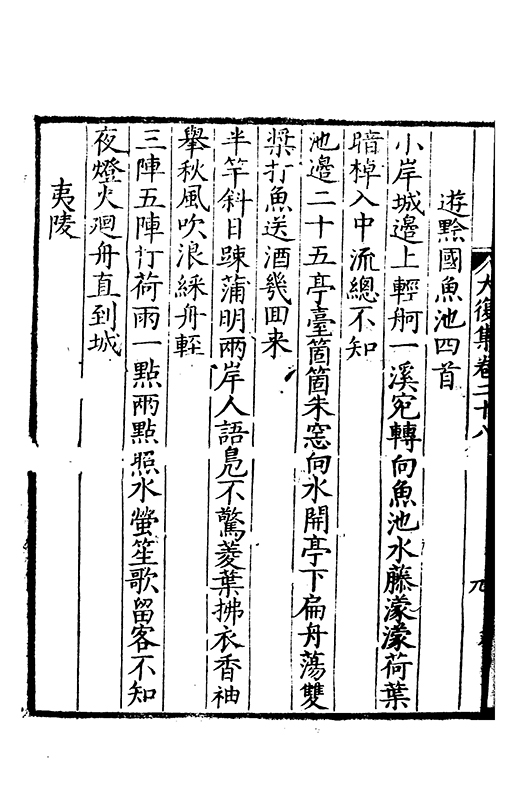 大復集卷二十八
遊黔國魚池四首
小岸城邊上輕舸一溪宛轉向魚池水藤濛濛荷葉
暗棹入中流總不知
池邊二十五亭臺箇箇朱窓向水開亭下扁舟蕩雙
槳打魚送酒幾回来
半竿斜日踈蒲明兩岸人語鳬不驚菱葉拂衣香袖
舉秋風吹浪綵舟輕
三陣五陣打荷雨一點兩點照水螢笙歌留客不知
夜燈火迴舟直到城
夷陵